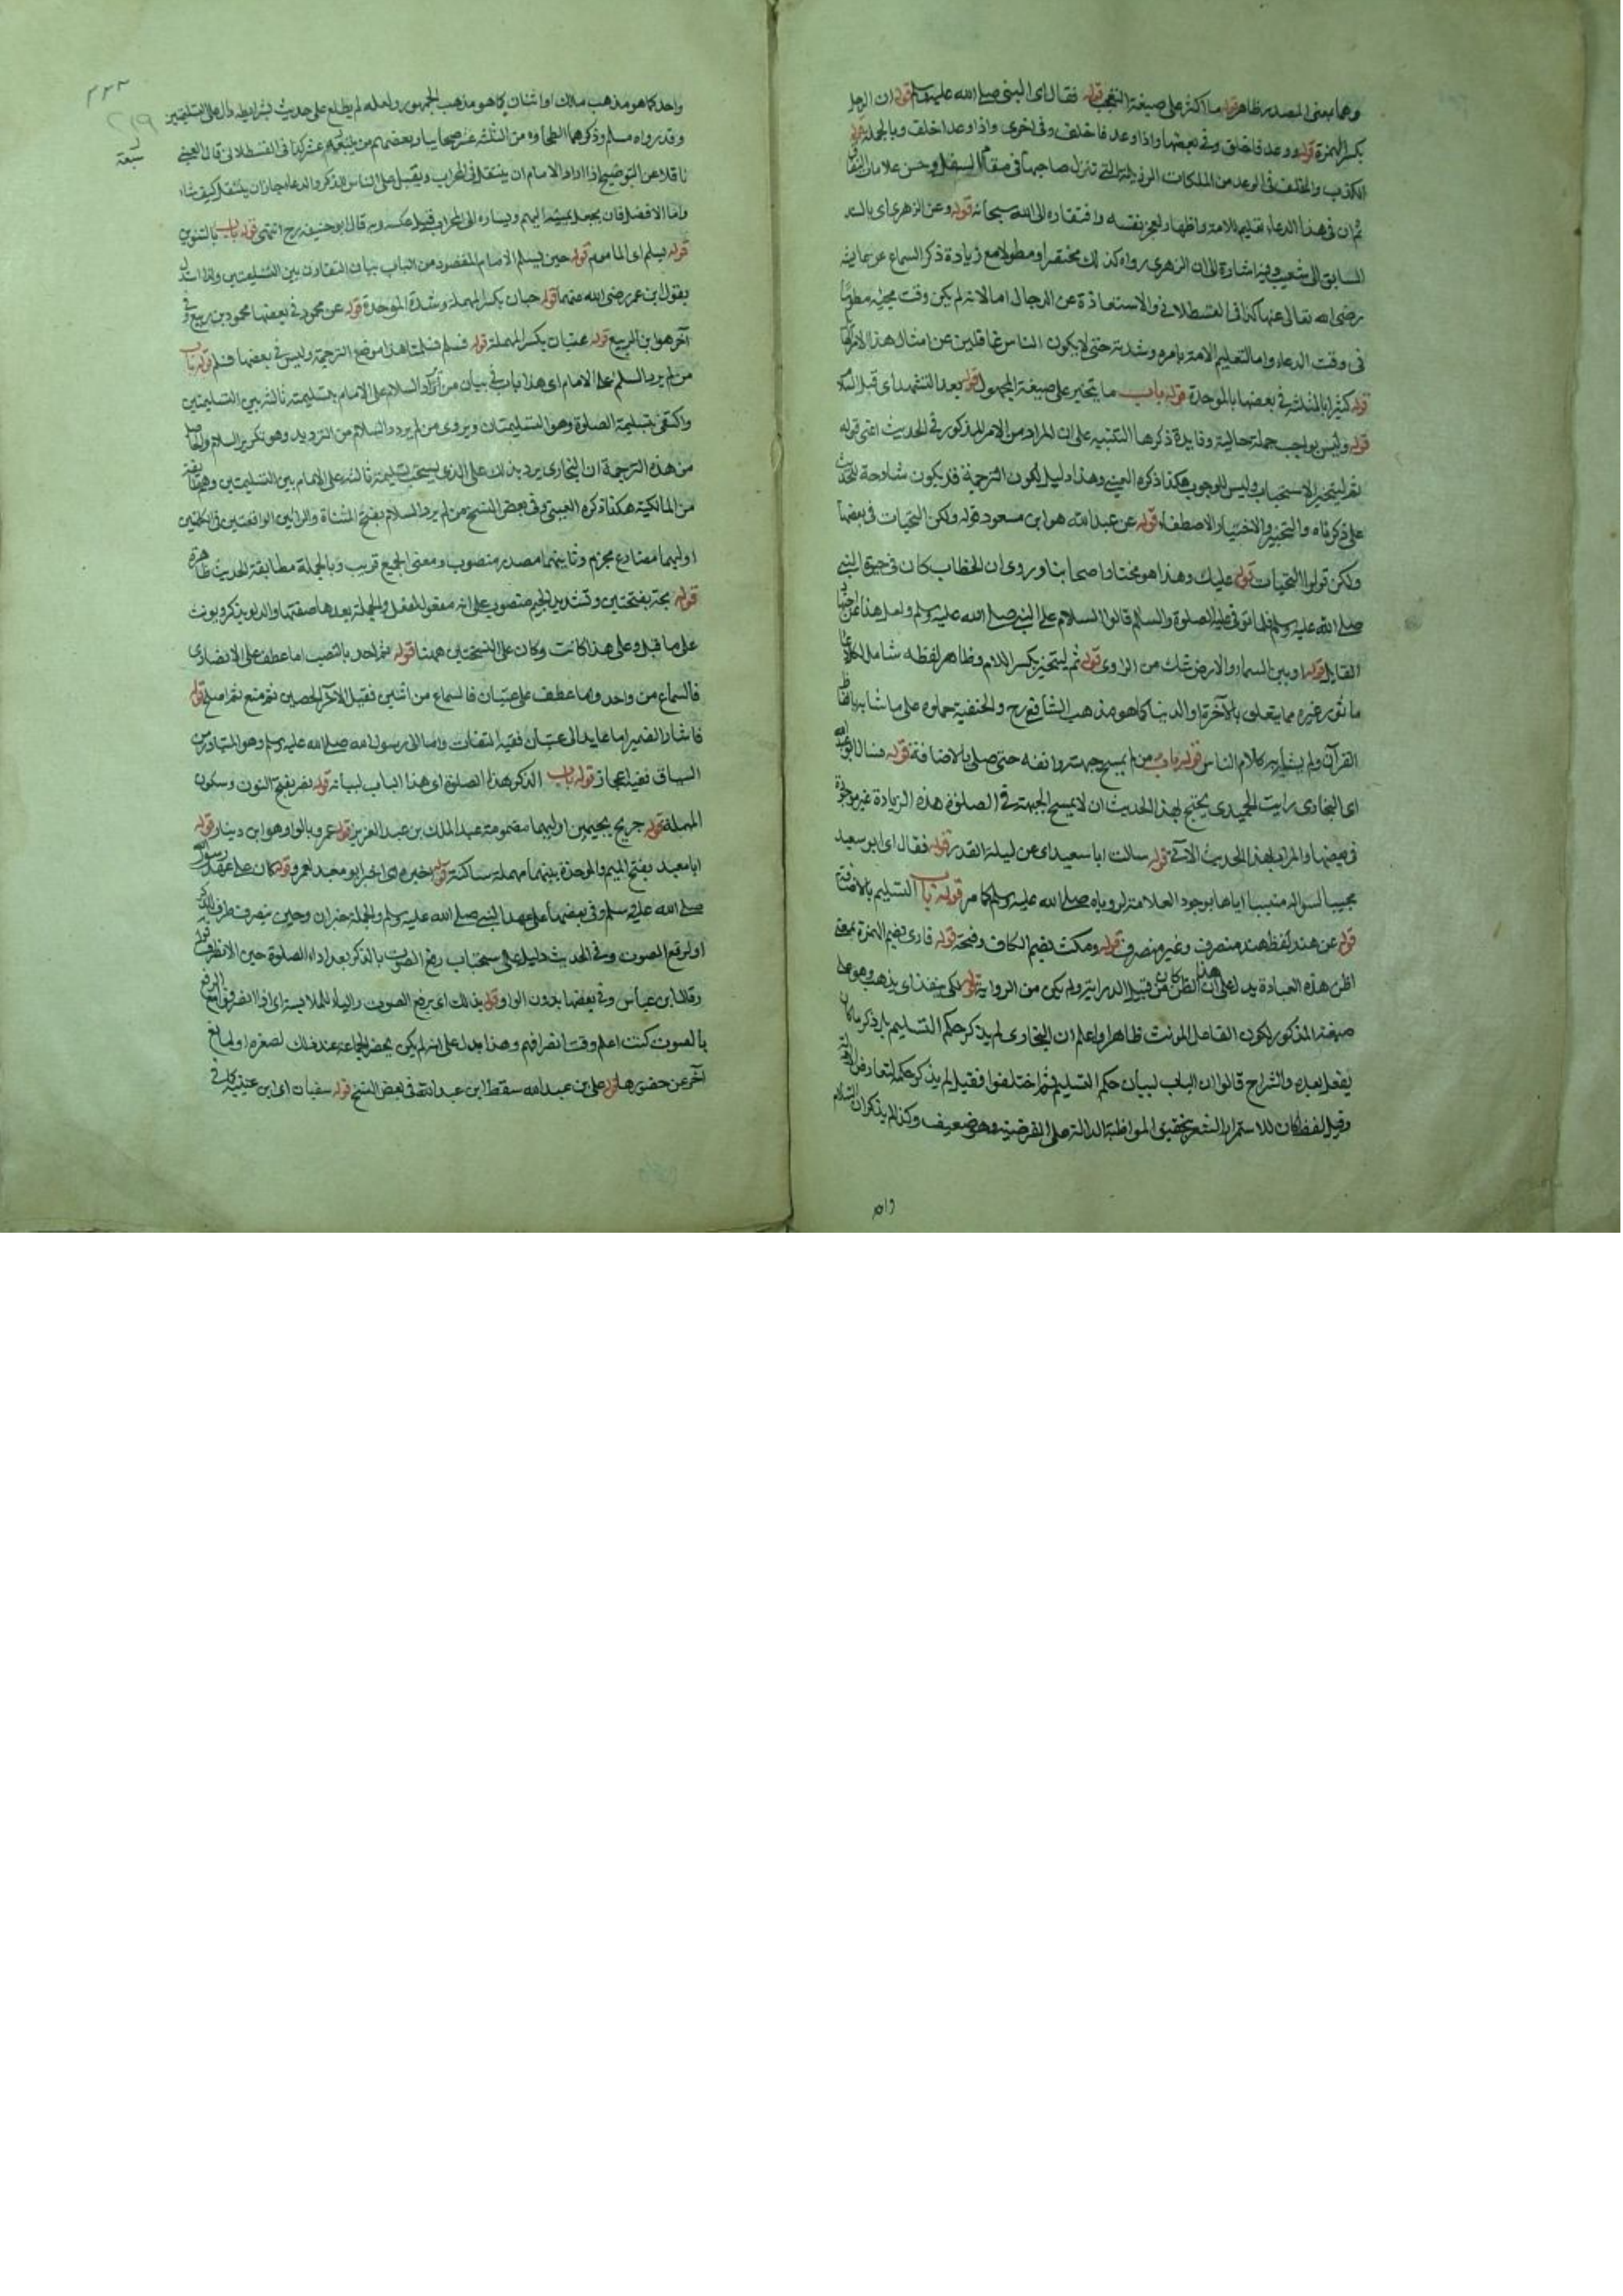 وهما بمعنى المصدر ظاهر قوله ما اكثر على صيغة التعجب قوله فقال اى النبى صلى الله عليه وسلم قوله ان الرجل
بكسر الهمزة قوله ووعد فاخلف وفى بعضها واذا وعد فاخلف وفى اخرى واذا وعد اخلف وبالجملة
الكذب والخلف فى الوعد من الملكات الرذيلة التى تنزل صاحبها فى مقام السفل وحسن علامات النفاق
ثم ان فى هذا الدعاء تعليم الامة واظهار لعجز نفسه وافتقاره الى الله سبحانه قوله وعن الزهرى اى بالسند
السابق الى شعيب وفيه اشارة الى ان الزهرى رواه كذلك مختصرا ومطولا مع زيادة ذكر السماع عن عايشة
رضى الله تعالى عنها كذا فى القسطلانى والاستعاذة عن الدجال اما لانه لم يكن وقت مجيئه
فى وقت الدعاء واما لتعليم الامة بامره وشدته حتى لا يكون الناس غافلين عن امثال هذا
قوله كثيرا بالمثلثة فى بعضها بالموحدة قوله باب ما يتخير على صيغة المجهول قوله بعد التشهد اى قبل السلام
قوله وليس بواجب جملة حالية وفايدة ذكرها التنبيه على ان المراد من الامر المذكور فى الحديث اعنى قوله
ثم ليتخير الاستحباب وليس للوجوب هكذا ذكره العينى وهذا دليل لكون الترجمة قد يكون شارحة للحديث
على ذكرناه والتخيير والاختيار الاصطفاء قوله عن عبد الله هو ابن مسعود قوله ولكن التحيات فى بعضها
ولكن قولوا التحيات قوله عليك وهذا هو مختار اصحابنا وروى ان الخطاب كان فى حيوة النبى
صلى الله عليه وسلم فلما توفى عليه الصلوة والسلام قالوا السلام على النبى صلى الله عليه وسلم ولعل هذا عن
القايل قوله او بين السماء والارض شك من الراوى قوله ثم ليتخير بكسر اللام وظاهر لفظه شامل
ماثور غيره مما يتعلق بالآخرة او الدنيا كما هو مذهب الشافعى رح والحنفية حملوه على ما شابه بالفاظ
القرآن ولم يشابه كلام الناس قوله باب من لم يمسح جبهته وانفه حتى صلى بالاضافة قوله قال ابو عبد الله
اى البخارى رايت الحميدى يحتج بهذا الحديث ان لا يمسح الجبهة فى الصلوة هذه الزيادة غير موجودة
فى بعضها والمراد بهذا الحديث الآتى قوله سالت ابا سعيد اى عن ليلة القدر قوله فقال اى ابو سعيد
مجيبا لسواله اياها بوجود العلامة لروياه صلى الله عليه وسلم كما مر قوله باب التسليم بالاضافة
قوله عن هند لفظ هند منصرف وغير منصرف قوله ومكث بضم الكاف وفتحه قوله فارى بضم الهمزة بمعنى
اظن هذه العبادة يدل على ان هذا الظن كان من قبيل الدراية ولم يكن من الرواية قوله لكى ينفذ اى يذهب وهو على
صيغة المذكور لكون الفاعل المونث ظاهرا واعلم ان البخارى لم يذكر حكم التسليم بل ذكر ما كان
يفعل بعده والشراح قالوا ان الباب لبيان حكم التسليم ثم اختلفوا فقيل لم يذكر حكمه لتعارض الادلة
وقيل لفظ كان للاستمرار المشعر بتحقيق المواظبة الدالة على الفرضية وهو ضعيف وكذا لم يذكر ان السلام
واحد كما هو مذهب مالك او اثنان كما هو مذهب الجمهور ولعله لم يطلع على حديث بشرايطه دال على التسليمتين
وقد رواه مسلم وذكرهما الطحاوى من الثلثة عشر صحابيا وبعضهم من عشر كذا فى القسطلانى قال العينى
ناقلا عن التوضيح اذا اراد الامام ان ينتقل فى المحراب ويقبل على الناس للذكر والدعاء جاز ان ينتقل كيف شاء
واما الافضل فان يجعل يمينه اليهم ويساره الى المحراب وقيل عكسه وبه قال ابو حنيفة رح انتهى قوله باب بالتنوين
قوله يسلم اى الماموم قوله حين يسلم الامام المقصود من الباب بيان التقارن بين التسليمتين ولذا استدل
بقول ابن عمر رضى الله عنهما قوله حبان بكسر المهملة وشدة الموحدة قوله عن محمود فى بعضها محمود بن ربيع وفى
آخر هو ابن الربيع قوله عتبان بكسر المهملة قوله فسلم فسلمنا هذا موضع الترجمة وليس فى بعضها فسلم قوله باب
من لم يرد السلام على الامام اى هذا باب فى بيان من ترك رد السلام على الامام بتسليمة ثالثة بين التسليمتين
واكتفى بتسليمة الصلوة وهو التسليمتان ويروى من لم يردد السلام من الترديد وهو تكرير السلام والحاصل
من هذه الترجمة ان البخارى يرد بذلك على الذى يستحب تسليمة ثالثة على الامام بين التسليمتين وهم طائفة
من المالكية هكذا ذكره العينى وفى بعض النسخ من لم يرد السلام بفتح المثناة والرائين الواقعتين فى
اوليهما مضارع مجزوم وثانيتهما مصدر منصوب ومعنى الجميع قريب وبالجملة مطابقة الحديث ظاهرة
قوله مجة بفتحتين وتشديد الجيم منصوب على انه مفعول لعقل والجملة بعدها صفتها والدلو يذكر ويونث
على ما قيل وعلى هذا كانت وكان على النسختين ههنا قوله ثم احد بالنصب اما عطف على الانصارى
فالسماع من واحد واما عطف على عتبان فالسماع من اثنين
فاشار الضمير اما عايد الى عتبان ففيه التفات واما الى رسول الله صلى الله عليه وسلم وهو المتبادر من
السياق ففيه اعجاز قوله باب الذكر بعد الصلوة اى هذا الباب لبيانه قوله نصر بفتح النون وسكون
المهملة قوله جريج بجيمين اوليهما مضمومة عبد الملك بن عبد العزيز قوله عمرو بالواو وهو ابن دينار قوله
ابا معبد بفتح الميم والموحدة بينهما مهملة ساكنة قوله اخبره اى اخبر ابو معبد لعمرو قوله كان على عهد رسول الله
صلى الله عليه وسلم وفى بعضها على عهد النبى صلى الله عليه وسلم والجملة خبر ان وحين ينصرف ظرف للذكر
او لرفع الصوت وفى الحديث دليل على استحباب رفع الصوت بالذكر بعد اداء الصلوة حين الانصراف قوله
وقال ابن عباس وفى بعضها بدون الواو قوله بذلك اى برفع الصوت والباء للملابسة اى اذا انصرفوا مع الرفع
بالصوت كنت اعلم وقت انصرافهم وهذا يدل على انه لم يكن يحضر الجماعة عند ذلك لصغره او لمانع
آخر عن حضورها قوله على بن عبد الله سقط ابن عبد الله فى بعض النسخ قوله سفيان اى ابن عيينة كما فى
سبعة